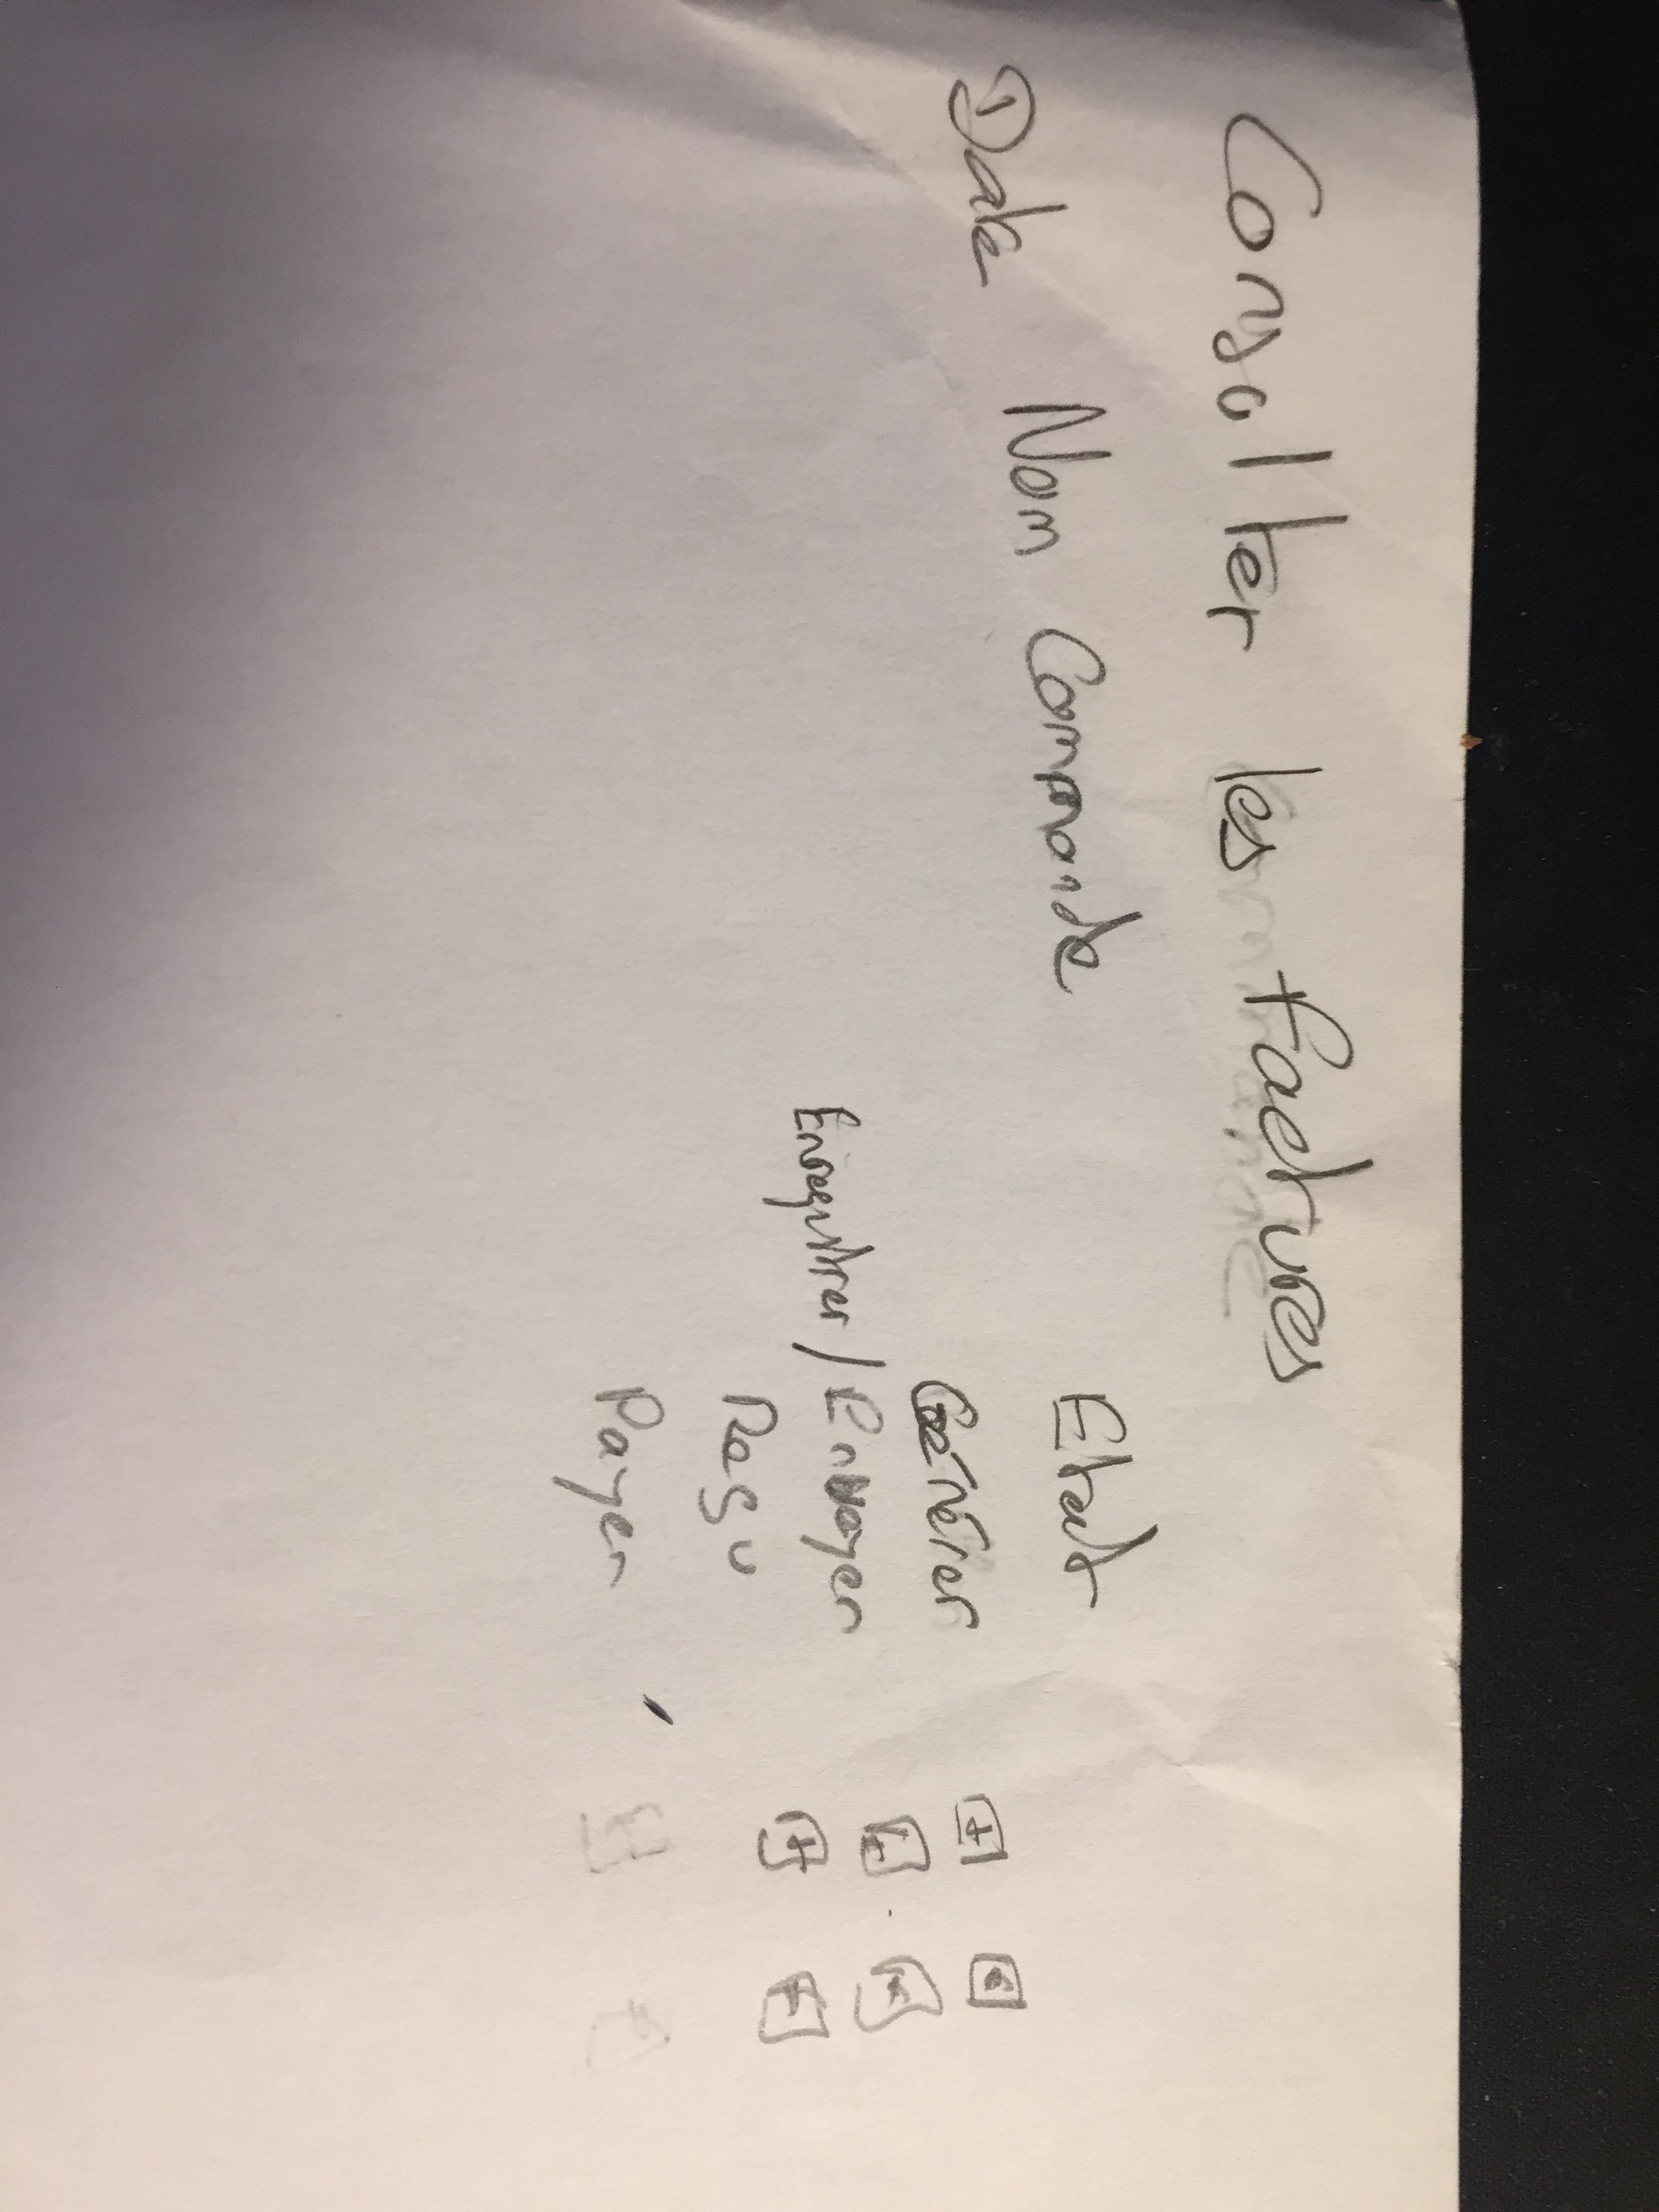 Consulter les factures
Date Nom Commande Etat
Enregistrer / Envoyer
Reçu
Payer